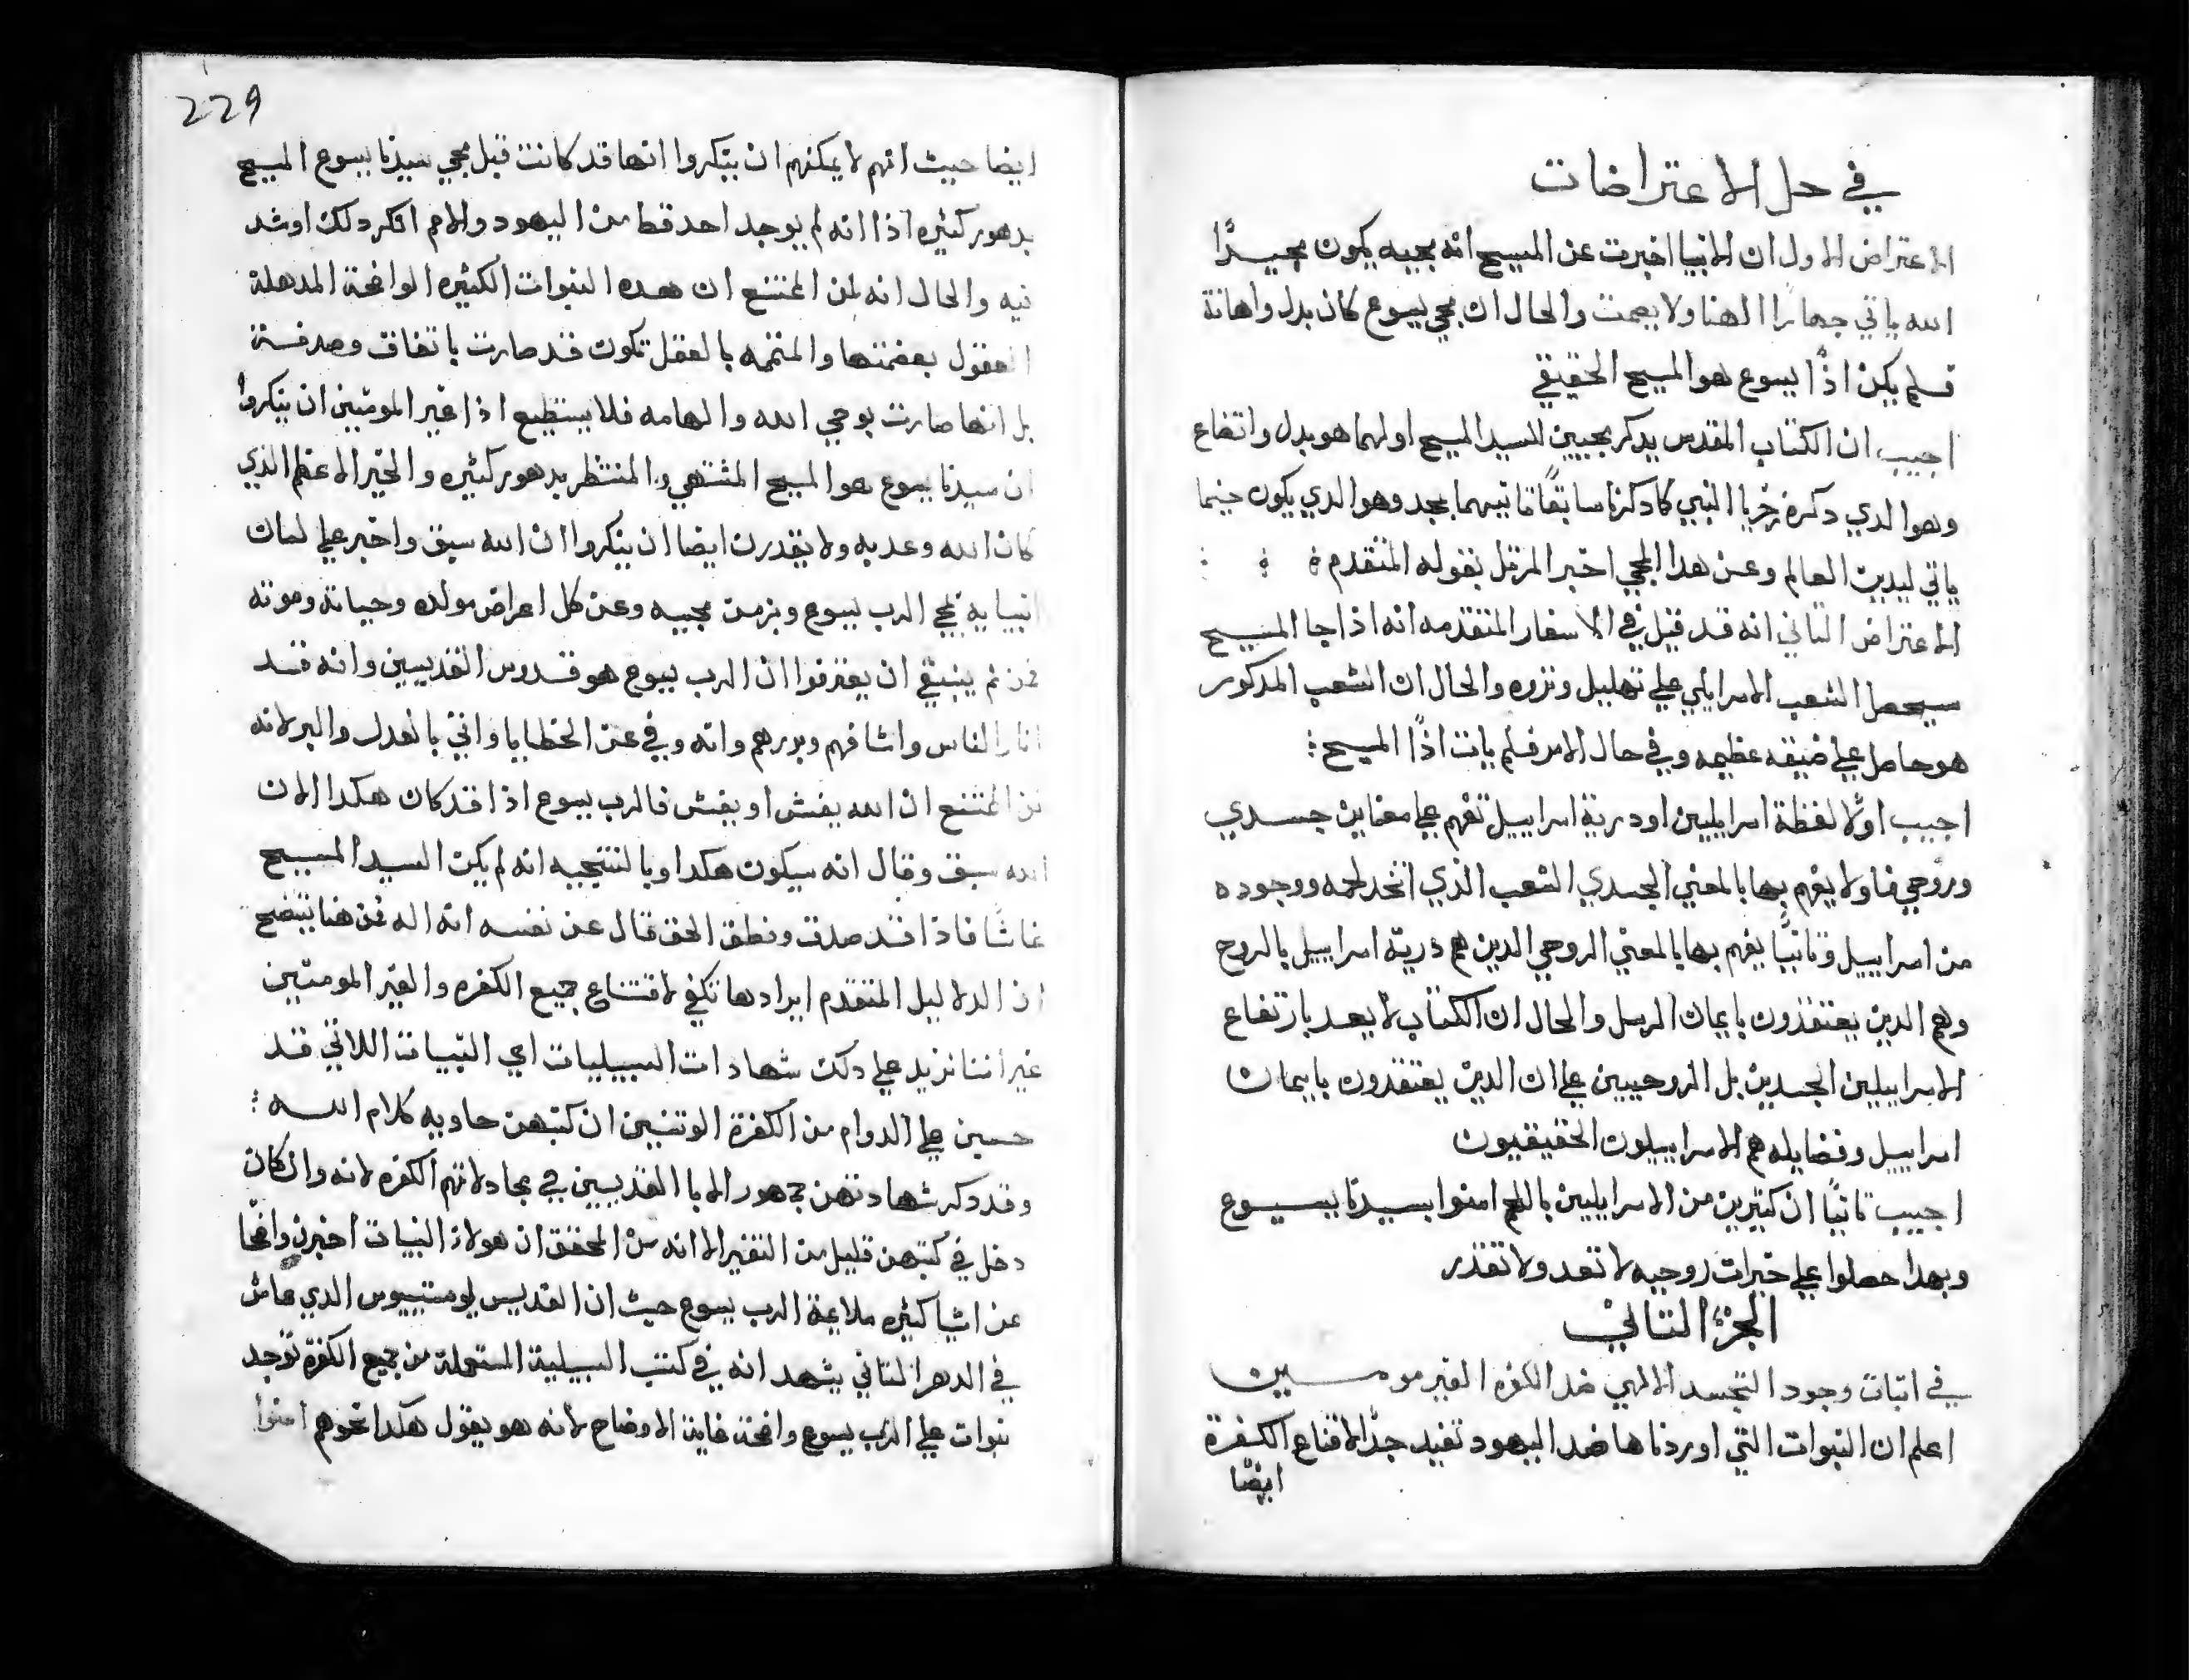 في حل الاعتراضات
الاعتراض الاول ان الانبيا اخبرت عن المسيح انه بمجيه يكون مجيدًا
الله ياتي جهارًا الهنا ولا يصمت والحال ان مجي يسوع كان بدل واهانة
فلم يكن اذًا يسوع هو المسيح الحقيقي
اجيب ان الكتاب المقدس يدكر مجيين للسيد المسيح اولهما هو بدل واتضاع
وهو الدي دكره زخريا النبي كما دكرنا سابقًا تانيهما بمجد وهو الدي يكون حينما
ياتي ليدين العالم وعن هدا المجي اخبر المرتل بقوله المتقدم
الاعتراض التاني انه قد قيل في الاسفار المتقدمه انه اذا جا المسيح
سيحصل الشعب الاسرايلي علي تهليل وتروه والحال ان الشعب المدكور
هو حاصل علي ضيقه عظيمه وفي حال الامر فلم يات اذًا المسيح :
اجيب اولًا لفظة اسرايليين او درية اسراييل تفهم علي معنايين جسدي
وروحي فاولا يفهم بها بالمعني الجسدي الشعب الذي اتخد لحمه ووجوده
من اسراييل وتانيًا يفهم بها بالمعني الروحي الدين هم ذرية اسراييل بالروح
وهم الدين يعتقدون بايمان الرسل والحال ان الكتاب لا يعد بارتفاع
الاسراييلين الجسدين بل الروحيين علي ان الدين يعتقدون بايمان
اسراييل وفضايله هم الاسراييلون الحقيقيون
اجيب تانيًا ان كتيرين من الاسرايليين باللحم امنوا بسيدنا يسوع
وبهدا حصلوا علي خيرات روحيه لا تعد ولا تقدر
الجزء التاني
في اتبات وجود التجسد الالهي ضد الكفره الغير مومنين
اعلم ان النبوات التي اوردناها ضد اليهود تفيد جدًا لاقناع الكفرة
ايضًا
229
ايضا حيث انهم لا يمكنهم ان ينكروا انها قد كانت قبل مجي سيدنا يسوع المسيح
بدهور كثيره اذا انه لم يوجد احد قط من اليهود والامم انكر دلك او شك
فيه والحال انه لمن الممتنع ان هده النبوات الكثيره الواضحة المدهلة
العقول بعضمتها والمتممه بالعقل تكون قد صارت باتفاق وصدفة
بل انها صارت بوحي الله والهامه فلا يستطيع اذا غير المومنين ان ينكروا
ان سيدنا يسوع هو المسيح المشتهي والمنتظر بدهور كثيره والخير الاعظم الذي
كان الله وعد به ولا يقدرن ايضا ان ينكروا ان الله سبق واخبر علي لسان
انبيايه بمجي الرب يسوع وبزمن مجييه وعن كل اعراض مولده وحياته وموته
فمن تم ينبغي ان يعترفوا ان الرب يسوع هو قدوس القديسين وانه قد
انار الناس واشافهم وبررهم وانه وفي عن الخطايا واتي بالعدل والبر لانه
من الممتنع ان الله يغش او يغش فالرب يسوع اذا قد كان هكدا لان
الله سبق وقال انه سيكون هكدا وبالنتيجيه انه لم يكن السيد المسيح
غاشًا فاذا قد صدق ونطق الحق قال عن نفسه انه اله فمن هنا يتضح
ان الدلاليل المتقدم ايرادها تكفي لاقتناع جميع الكفره والغير المومنين
غير اننا نزيد علي دلك شهادات السبيليات اي النبيات اللاتي قد
حسبن علي الدوام من الكفرة الوتنيين ان كتبهن حاويه كلام الله :
وقد دكر شهادتهن جمهور الابا القديسين في مجادلاتهم الكفره لانه وان كان
دخل في كتبهن قليل من التغير الا انه من المحقق ان هولاء النبيات اخبرن واضحًا
عن اشيا كثيره ملايمة الرب يسوع حيث ان القديس يوستينوس الدي عاش
في الدهر التاني يشهد انه في كتب السبيلية المستعملة من جميع الكفرة توجد
نبوات علي الرب يسوع واضحة غاية الاوضاح لانه هو يقول هكدا نحوهم امنوا